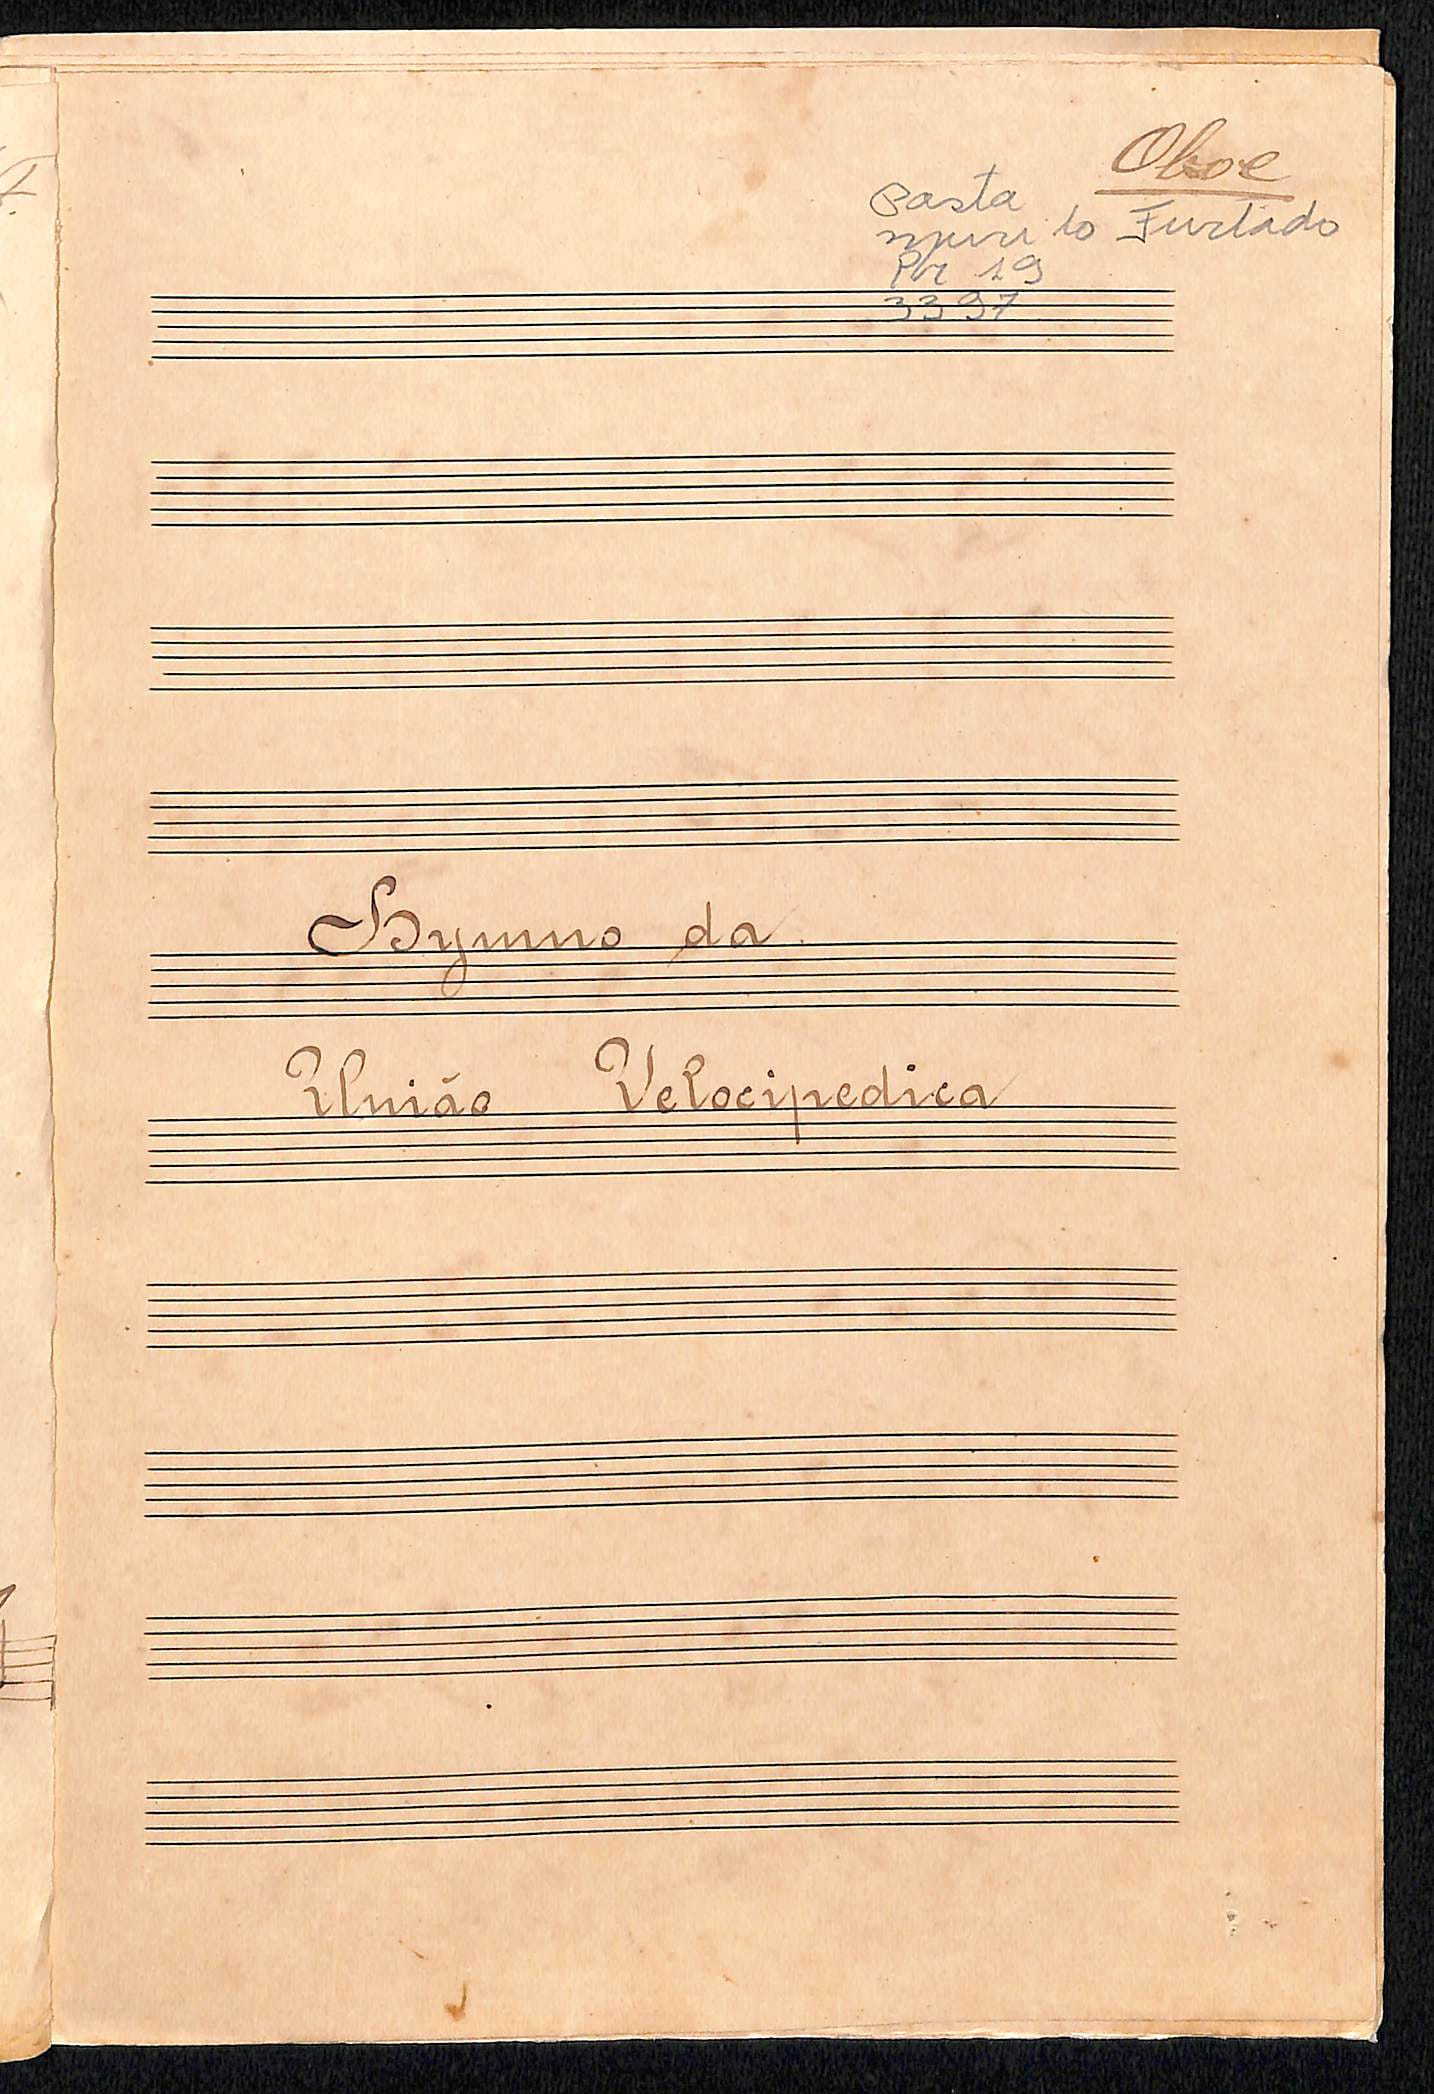 Oboe
Pasta
Murilo Furtado
Pr 19
3397
Hymno da
União Velocipedica